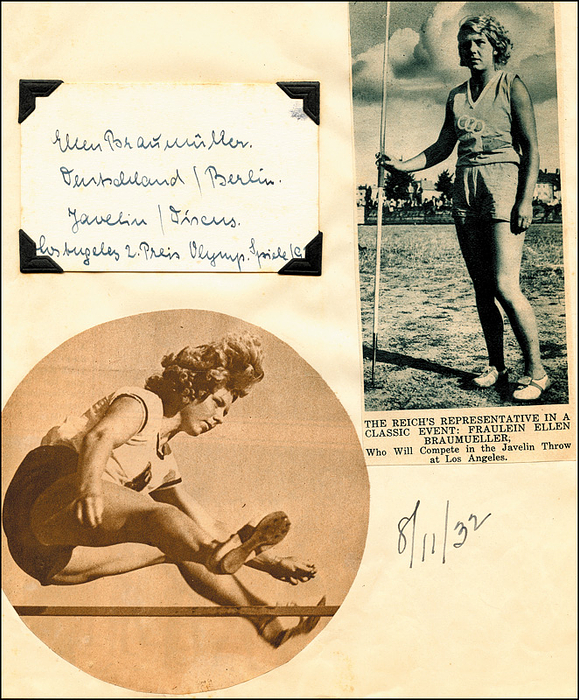 Ellen Braumüller.
Deutschland / Berlin.
Javelin / Discus.
Los Angeles 2. Preis Olymp. Spiele
THE REICH'S REPRESENTATIVE IN A
CLASSIC EVENT: FRAULEIN ELLEN
BRAUMUELLER,
Who Will Compete in the Javelin Throw
at Los Angeles.
8/11/32